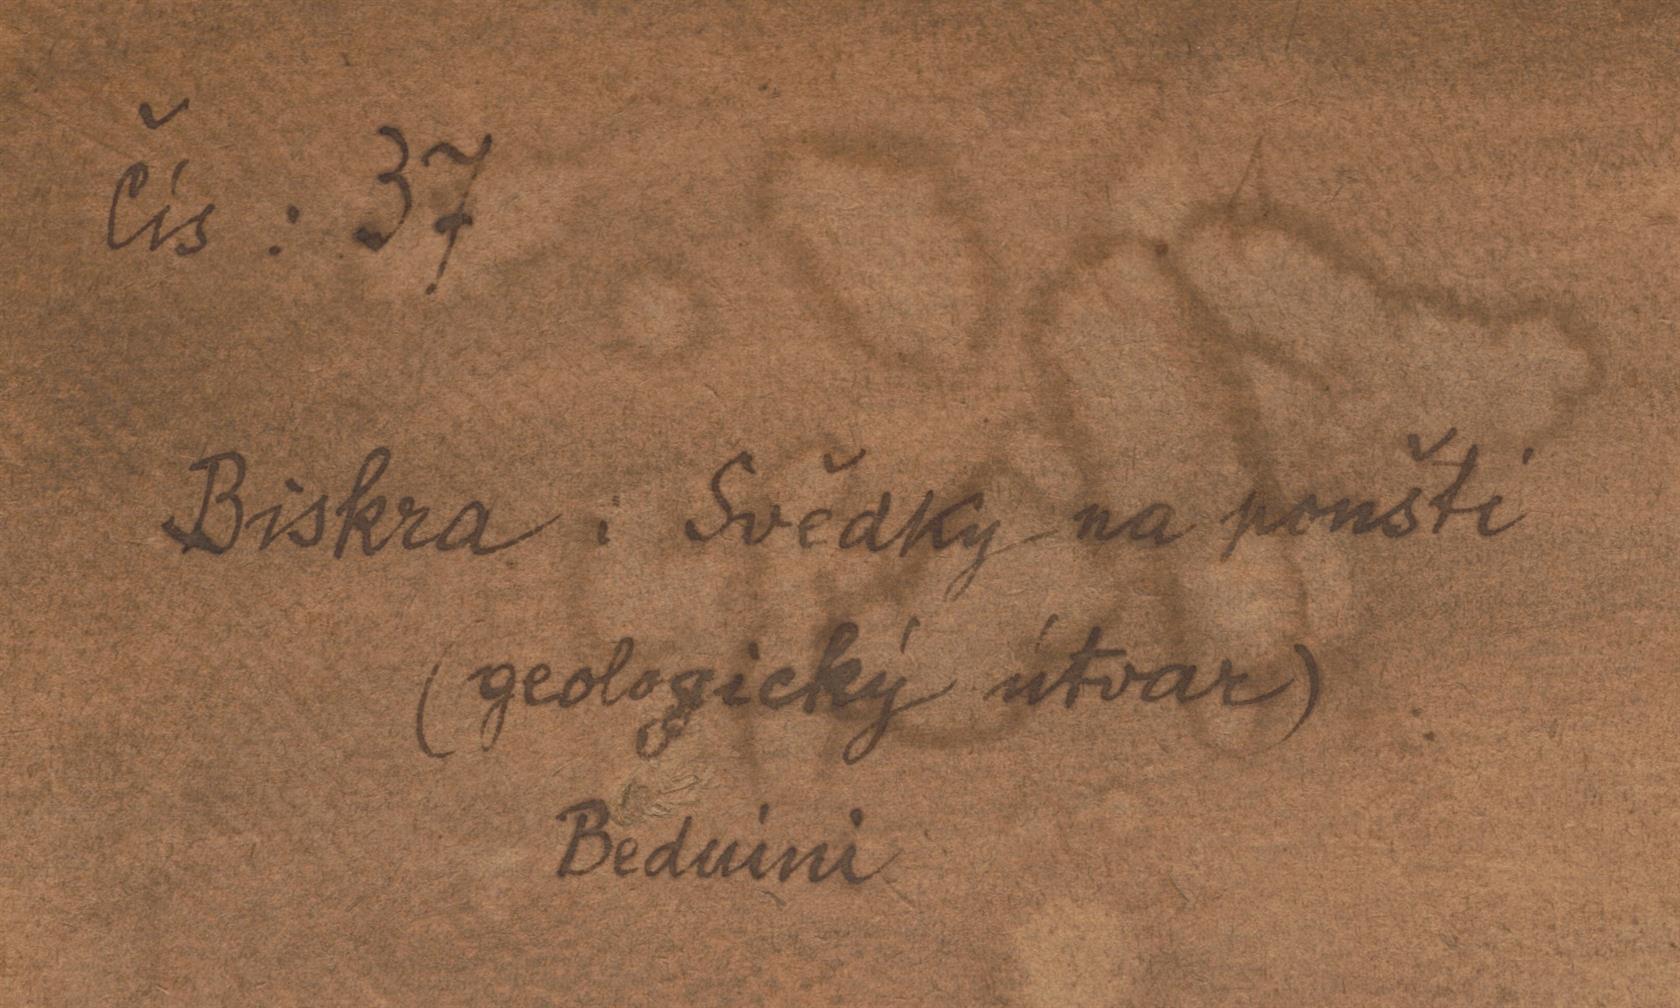 Čís : 37
Biskra : Svědky na poušti
(geologický útvar)
Beduini